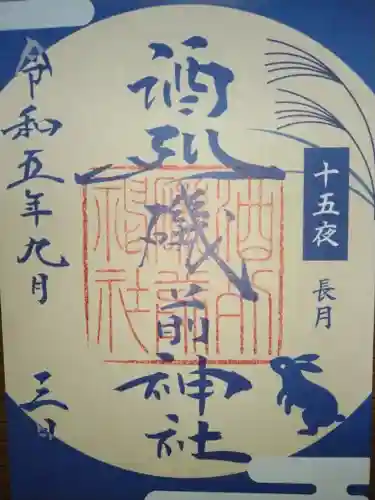 十五夜
長月
酒列磯前神社
酒列
磯前
神社
令和五年九月 三日